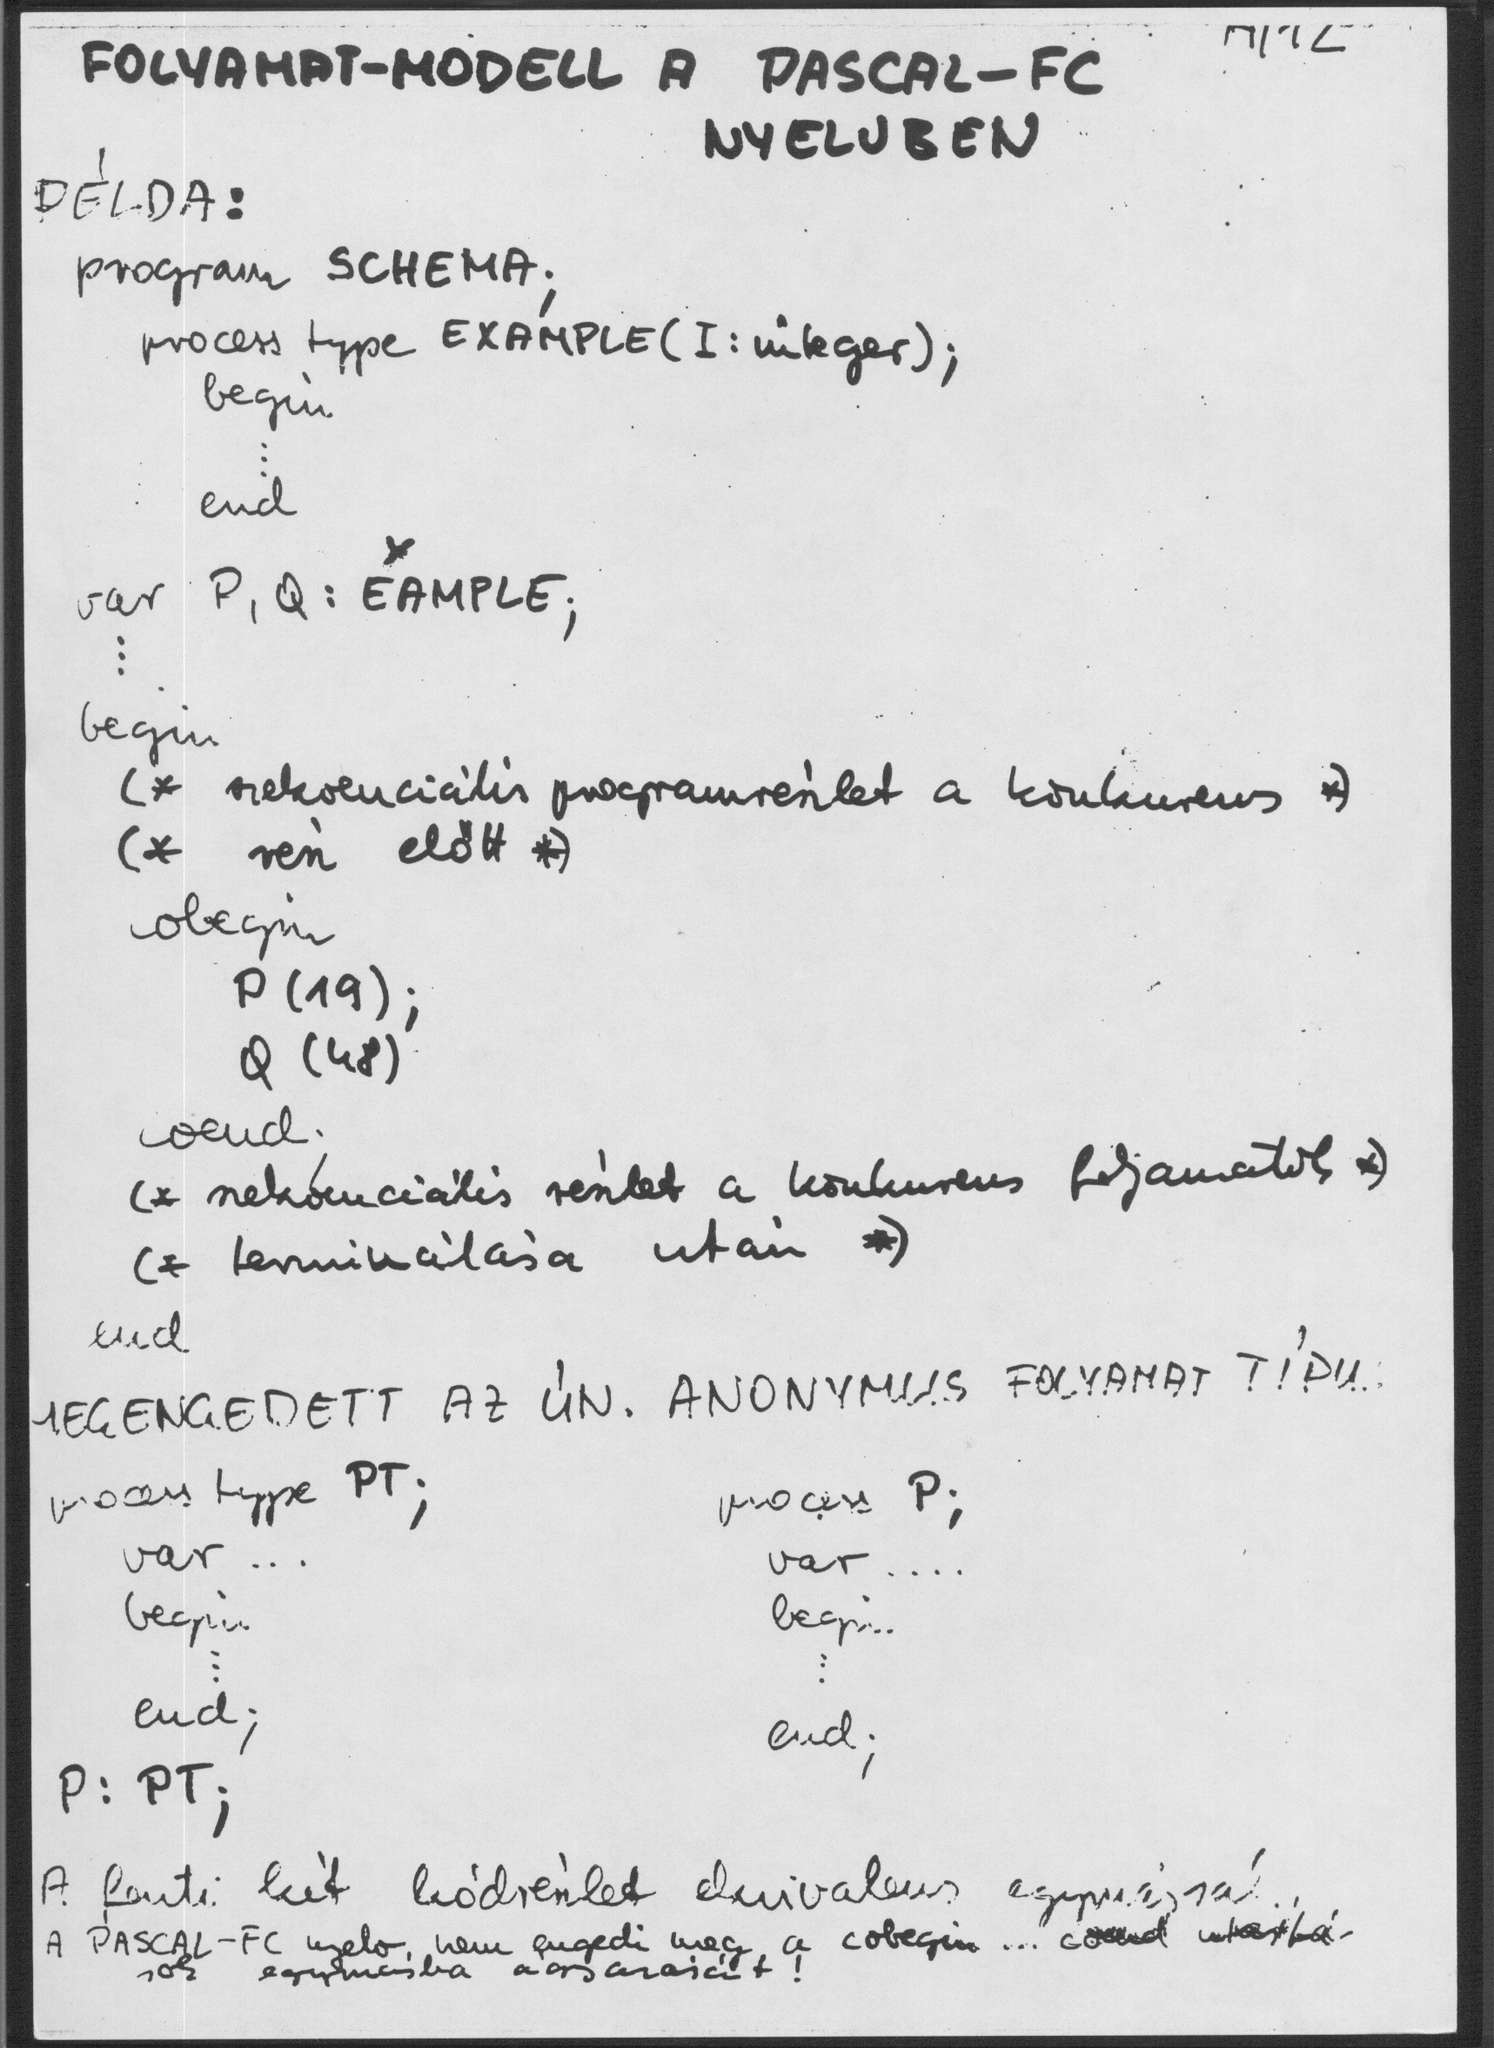 FOLYAMAT-MODELL A PASCAL-FC
NYELVBEN
PÉLDA:
program SCHEMA;
process type EXAMPLE (I: integer);
begin
⋮
end
var P, Q: EXAMPLE;
⋮
begin
(* szekvenciális programrészlet a konkurens *)
(* rész előtt *)
cobegin
P (19);
Q (48)
coend;
(* szekvenciális részlet a konkurens folyamatok *)
(* terminálása után *)
end
MEGENGEDETT AZ ÚN. ANONYMUS FOLYAMAT TÍPUS
process type PT;
var ...
begin
⋮
end;
P: PT;
process P;
var ....
begin
⋮
end;
A fenti két kódrészlet ekvivalens egymással.
A PASCAL-FC nyelv nem engedi meg a cobegin ... coend utasítá-
sok egymásba ágyazását!